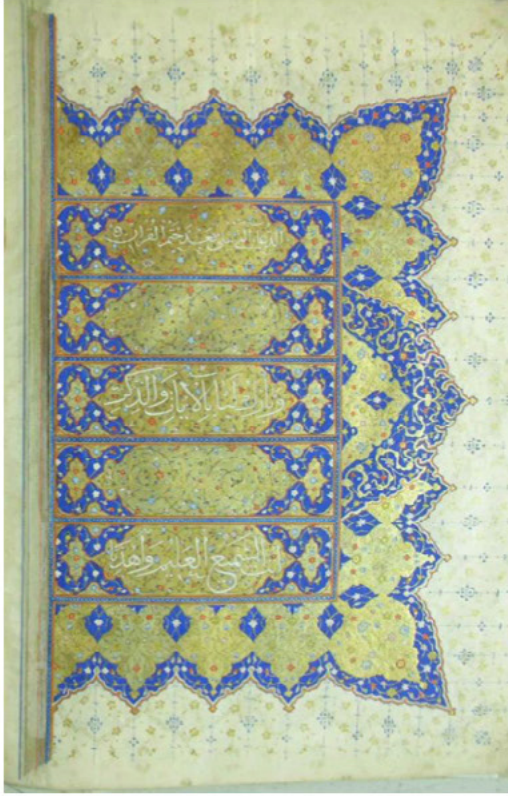 الدعاء المستحب بعد ختم القرآن
وارفعنا بالآيات والذكر
انت السميع العليم واهدنا